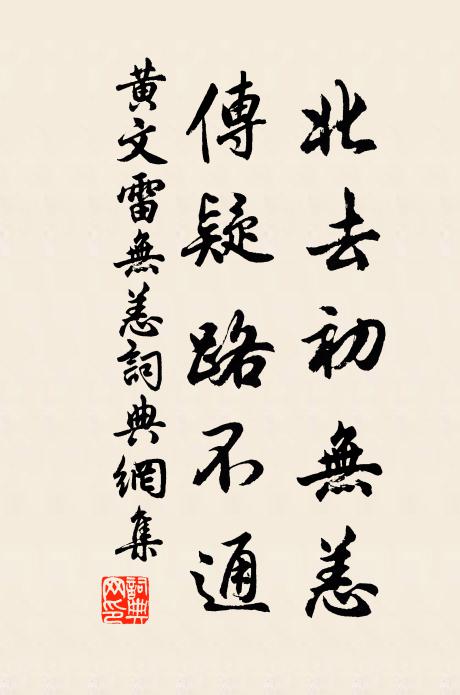 北去初無恙
傳疑路不通
黄文雷無恙詞典網集
詞典网印